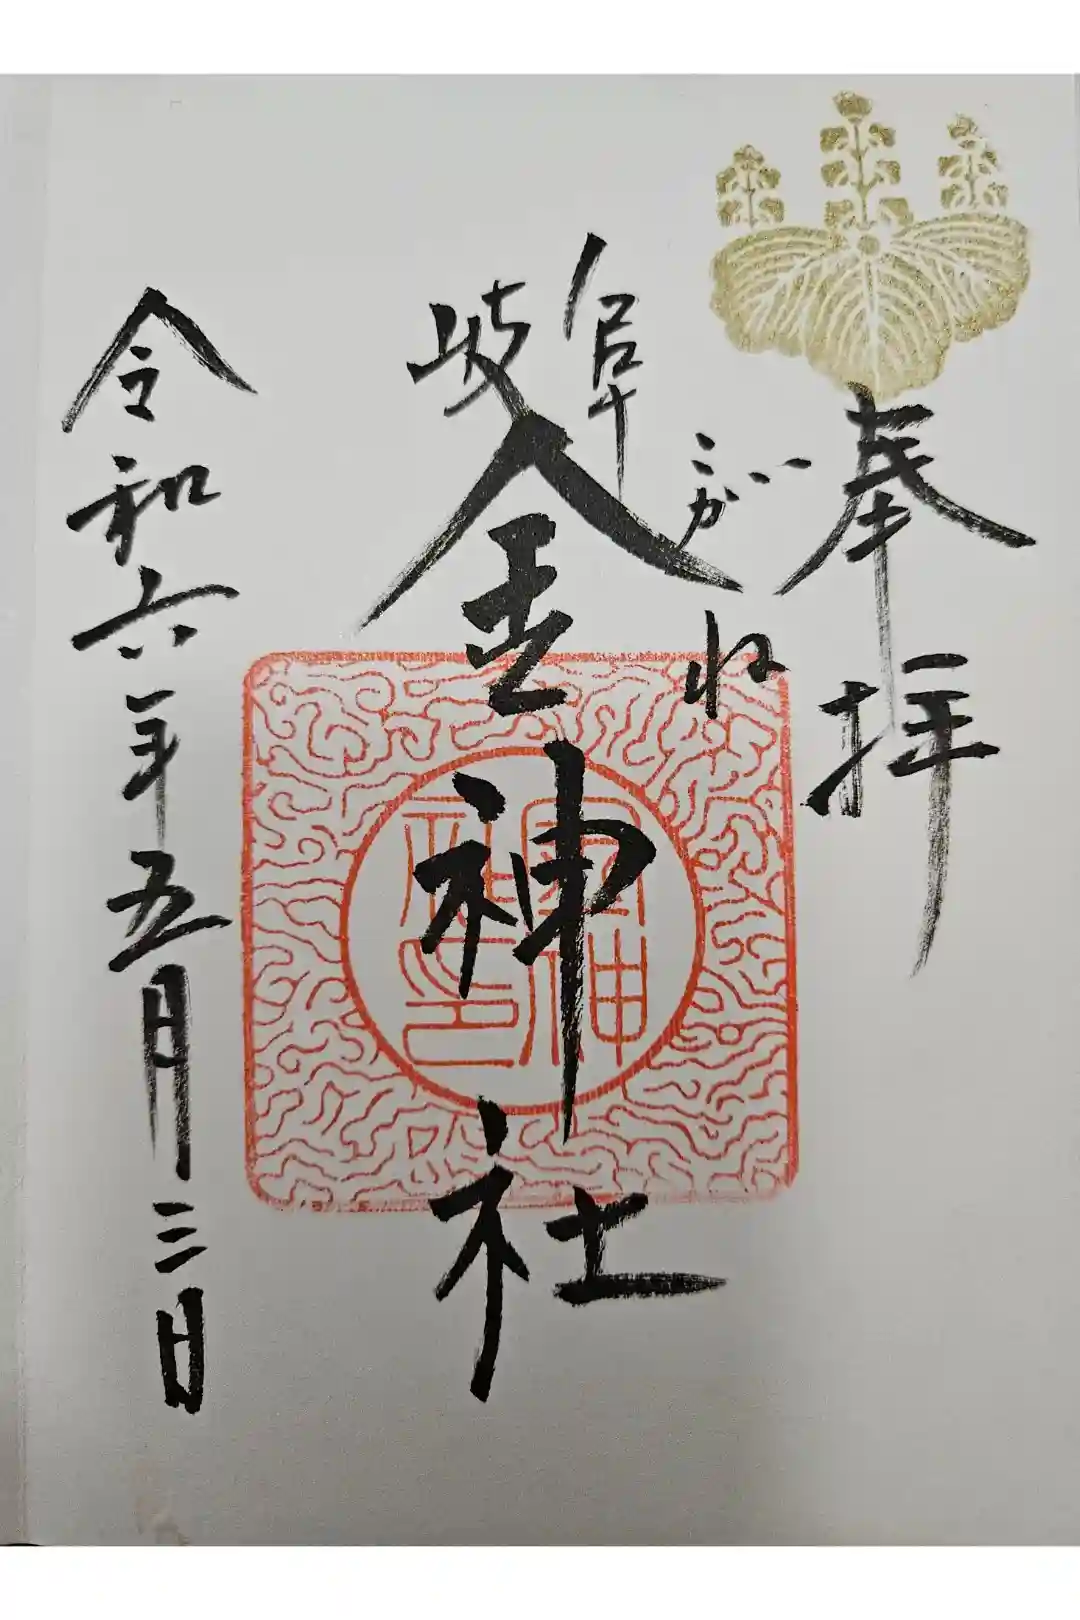 奉拝
岐阜
こがね
金神社
令和六年五月三日